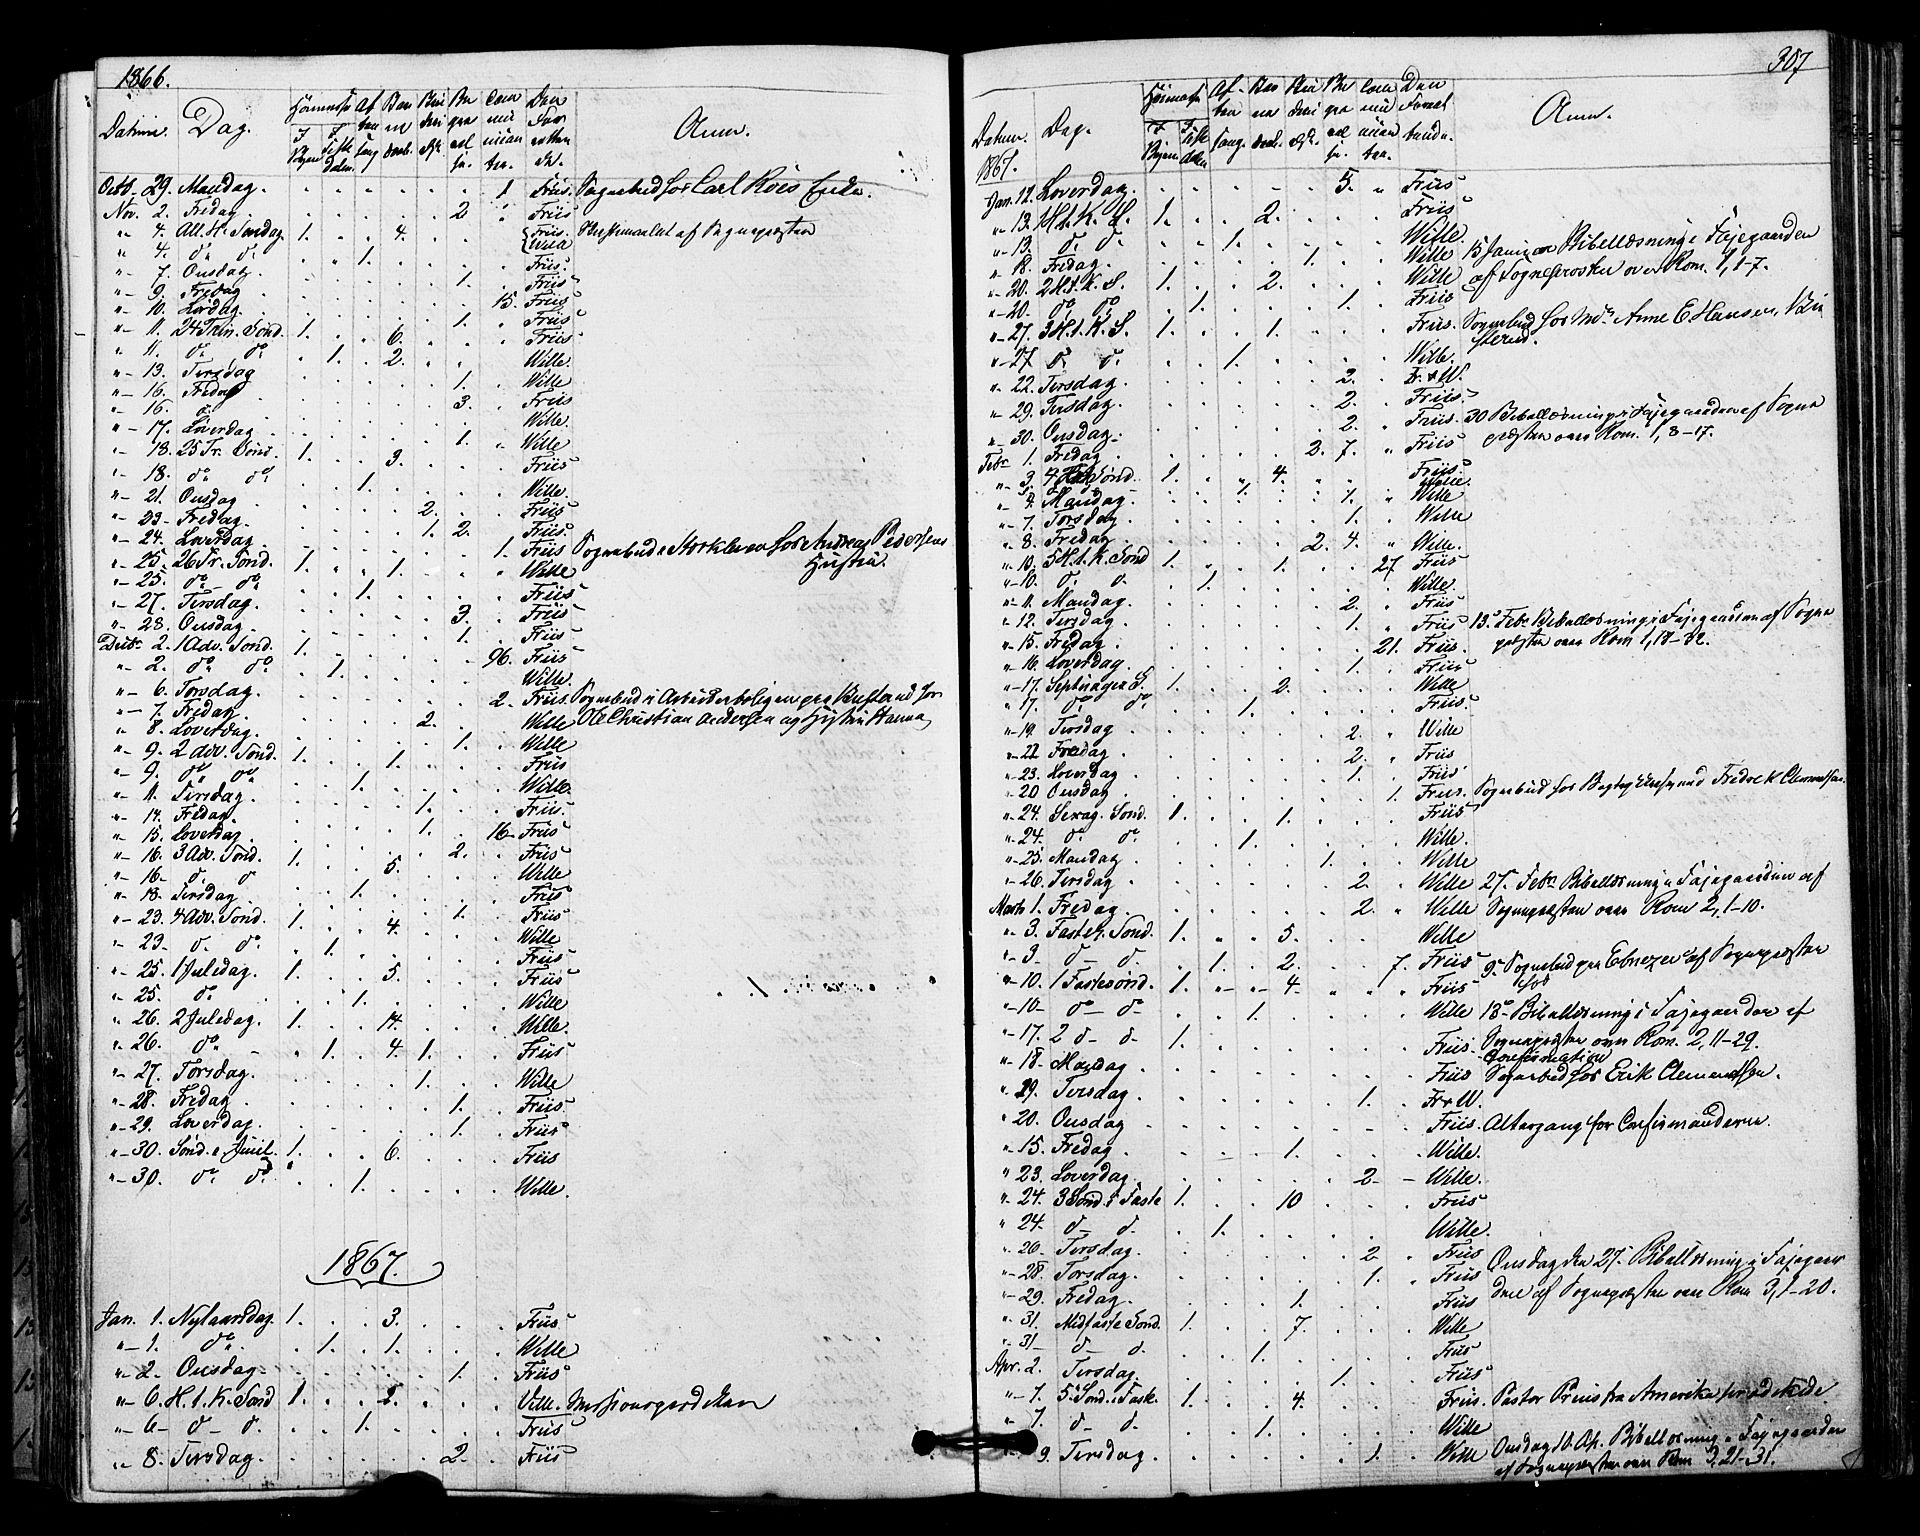 1866.
Datum. Dag. Høimesse Af Com Anm.
Octb. 29. Mandag. 1 Friis. Sognebud hos Carl Røis Enke.
Nov. 2. Fredag 2 " Friis
"- 4. All. H. Søndag. 1. 4. Friis. Wille af Sognepræsten
" 4. do do 1.
"- 7. Onsdag. 1. Friis.
"- 9. Fredag 15. Friis
"- 10. Lørdag. 1. Friis
"- 11. 24 Trin. Sønd. 1. 6. Friis
"- 11. do do 1. 2. Wille.
"- 13. Tirsdag 1. Wille
"- 16. Fredag 3. Friis
"- 16. do Wille.
"- 17. Løverdag 1. Wille
"- 18. 25 Tr. Sønd. 1. 3. Friis
"- 18. do do 1. Wille.
"- 21. Onsdag 2. Friis
"- 23. Fredag. 1. 2. Friis.
"- 24. Løverdag 1. Friis Sognebud i Storkleven hos Andreas Pedersens
"- 25. 26 Tr. Sønd. 1. 1. Wille Hustru.
"- 25. do do 1. Friis
"- 27. Tirsdag. 3. Friis
"- 28. Onsdag. 1. Friis
Decbr. 2. 1 Adv. Sønd. 1. 96. Friis
"- 2. do do 1. Wille.
"- 6. Torsdag. 2. Friis. Sognebud i Arbeiderboligen paa hos
"- 7. Fredag. 2. Wille Ole Christian Andersen og Hustru Hanna
" 8. Løverdag. 1. Wille
"- 9. 2 Adv. Sønd. 1. 1. Friis
"- 9. do do 1. Wille
"- 11. Tirsdag 1. Friis.
"- 14. Fredag. 1. 16. Friis
"- 15. Løverdag 2. Friis
"- 16. 3 Adv. Sønd. 1. 5. Wille
"- 16. d. d 1. Friis
"- 18. Tirsdag 1. Friis
"- 23. 4 Adv. Sønd. 1. 4. Wille
"- 23. d. do 1. Friis
"- 25. 1 Juledag. 1. 5. Friis
" 25. do 1. Wille
" 26. 2 Juledag. 1. 14. Wille.
"- 26. do 1. 4. 1. Friis
"- 27. Torsdag. 1. Wille
"- 28. Fredag 1. Friis
"- 29. Løverdag. 1. Friis
"- 30. Sønd. e. Juul. 1. 6. Friis
"- 30. do do 1. Wille.
1867.
Jan. 1. Nytaarsdag. 1. 3. Friis
"- 1. do. 1. 1. Wille
"- 2. Onsdag 1. Friis
"- 6. H. 3. K. Sønd 1. Wille. Missionsgudstjen
"- 6- d- d. 1. Friis
" 8. Tirsdag. 2. Friis
307
Datum. Dag. Høimesse Af- Com Anm.
1867.
Jan. 12. Løverdag. 5. " Friis
"- 13. 1 H. 3. K. S. 1. 2. Friis
"- 13. d. d. 1. Wille. 15 Januar Bibellæsning i Fajegaarden
"- 18. Fredag 1. Wille af Sognepresten over Rom. 1, 1-7.
"- 20. 2 H. 3. K. S. 1. 2. Wille
"- 20. do do 1. 1. Friis
"- 27. 3 H. 3. K. S. 1. 1. Friis. Sognebud hos Md. Anne E. Hansen,
"- 27 d. d. 1. Wille.
"- 22. Tirsdag 2. F. + W.
"- 29. Tirsdag. 2. Friis.
"- 30. Onsdag. 2. " Friis. 30 Bibellæsning i Fajegaarden af Sogne
Febr. 1. Fredag 2. 7. " Friis præsten over Rom. 1, 8-17.
"- 3. 4 Sønd. 1. 4. Friis.
"- 4. Mandag 1. " Wille
"- 7. Torsdag 1. Wille
"- 8. Fredag 2. 4. " Wille.
"- 10. 5 H. 3. K. Sønd 1. 1. 27 Friis
"- 10. d. d. 1. Wille.
"- 11. Mandag. 2. Friis
"- 12. Tirsdag 1. " Friis 13. Febr. Bibellæsning i Fajegaarden af Sogne
"- 15. Fredag. 21. Friis. præsten over Rom. 1, 18-32.
"- 16. Løverdag 1. Friis
"- 17. Septuages. S. 1. 2. Wille
"- 17. d. do 1. Friis
"- 19. Tirsdag 2. " Wille
"- 22 Fredag 2. " Friis
"- 23. Løverdag 1. Friis
"- 20 Onsdag 1. Friis. Sognebud hos Fredrik Clemmetsen
"- 24. Sexag. Sønd. 1. 1. Friis
"- 24. d. d. 1. Wille.
"- 25. Mandag 1. Wille
"- 26. Tirsdag 2. " Wille 27. Febr. Bibellæsning i Fajegaarden af
Marts 1. Fredag 2. " Wille Sognepræsten over Rom 2, 1-10.
"- 3. Fastel. Sønd. 1. " " 5. Wille
"- 3- d- d. 1. 2. 7. Friis 9. Sognebud paa Ebnezer af Sognepræsten
"- 10. 1 Fastesønd. 1. 4. Friis hos
"- 10- d- d. 1. Wille 13. Bibellæsning i Fajegaarden af
"- 17. 2 d- d. 1. Friis. Sognepræsten over Rom. 2, 11-29.
Confirmation
"- 18. Mandag Friis Sognebud hos Erik Clemmetsen.
"- 19. Tirsdag. 1. Fr + W.
"- 20. Onsdag Friis. Altergang for Confirmanderne.
"- 15. Fredag 1. Wille.
"- 23. Løverdag 2 - Wille.
"- 24. 3 Sønd. i Faste 1. 10 Friis
"- 24. d- d. 1. Wille.
"- 26. Tirsdag. 2 " Friis Onsdag den 27. Bibellæsning i Fajegaar
"- 28. Torsdag. 1. " Friis den af Sognepræsten over Rom 3, 1-20.
"- 29. Fredag. 1. Friis
"- 31. Midfaste Sønd. 1. 7. Wille
"- 31- d- d. 1. Friis
Apr. 2. Tirsdag. 1. Friis
"- 7. 5. Sønd. i Faste. 1. 4. Friis. Pastor Preus fra Amerika prædikede
"- 7. d- d. 1. Wille
9. Tirsdag. 1. Wille Onsdag 10. Ap. Bibellæsning i Fajegaarden
af Sognepræsten over Rom 3, 21-31.